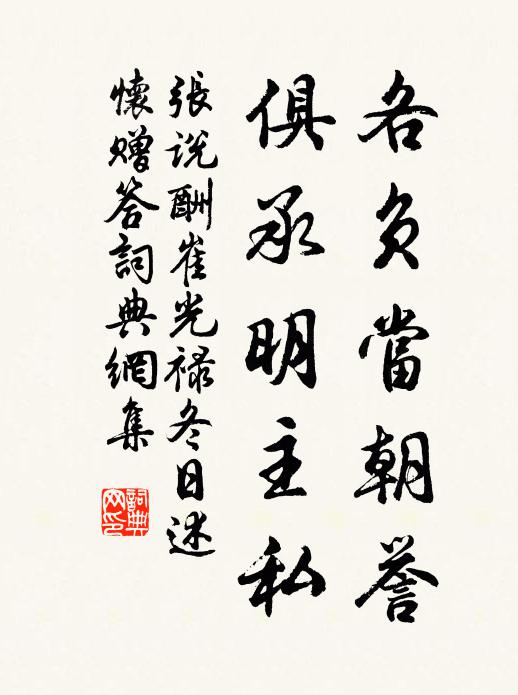 各負當朝譽
俱承明主私
張說酬崔光祿冬日述
懷贈答詞典網集
詞典网印